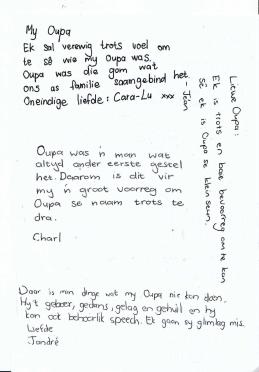 My Oupa
Ek sal verewig trots voel om
te sê wie my Oupa was.
Oupa was die gom wat
ons as familie saamgebind het.
Oneindige liefde: Cara-Lu xxx
Liewe Oupa:
Ek is trots en baie bevoorreg om te kan
sê ek is Oupa se kleinseun.
- Jean
Oupa was 'n man wat
altyd ander eerste gestel
het. Daarom is dit vir
my 'n groot voorreg om
Oupa se naam trots te
dra.
Charl
Daar is min dinge wat my Oupa nie kon doen.
Hy't geboer, gedans, gelag en gehuil en hy
kon ook behoorlik speech. Ek gaan sy glimlag mis.
Liefde
Jandré